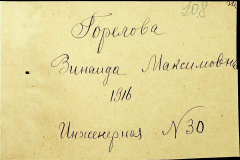 208
Горелова
Зинаида Максимовна
1916
Инженерная N 30